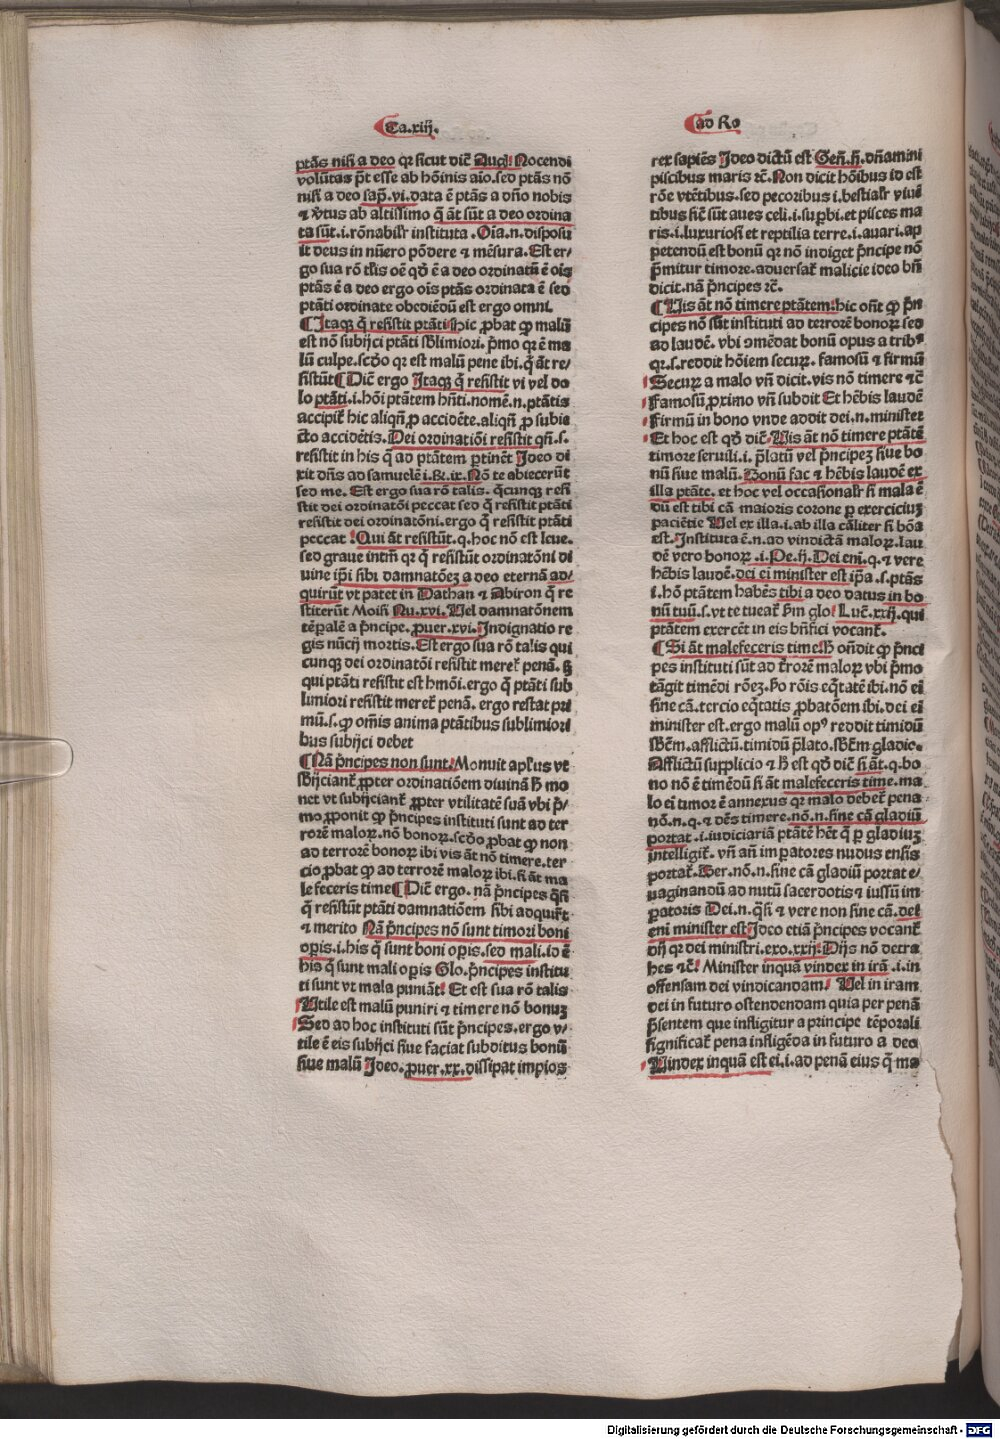 Ca.xiij.
ptās nisi a deo qr sicut dicit Aug. Nocendi
volūtas pōt esse ab hōinis aīo.sed ptās nō
nisi a deo sap̄.vi.data ē ptās a dn̄o nobis
⁊ v̄tus ab altissimo q̄ āt sūt a deo ordina
ta sūt.i.rōnabilr̄ instituta.Oīa.n.disposu
it deus in nūero pōdere ⁊ mēsura.Est er⸗
go sua rō tl̄is oē qd̄ ē a deo ordinatū ē oīs
ptās ē a deo ergo oīs ptās ordinata ē sed
ptāti ordinate obediēdū est ergo omni.
¶Itaqꝫ q̄ resistit ptāti hic ꝓbat ꝙ malū
est nō subijci ptāti sb̄limiori.p̄mo qꝛ ē ma
lū culpe.scd̄o qꝛ est malū pene ibi.q̄ āt re⸗
sistūt¶Dic̄ ergo Itaqꝫ q̄ resistit vi vel do
lo ptāti.i.hōi ptātem hn̄ti.nomē.n.ptātis
accipit̄ hic aliqn̄ ꝓ accidēte.aliqn̄ ꝓ subie
cto accidētis.Dei ordinatiōi resistit qn̄.s.
resistit in his q̄ ad ptātem ꝑtinēt Ideo di
xit dn̄s ad samuelē i.Re.ix.Nō te abiecerūt
sed me. Est ergo sua rō talis. q̄cunqꝫ resi
stit dei ordinatōi peccat sed q̄ resistit ptāti
resistit dei ordinatōni.ergo q̄ resistit ptāti
peccat Qui āt resistūt.q.hoc nō est leue.
sed graue intm̄ qꝛ q̄ resistūt ordinatōni di
uine ip̄i sibi damnatōeꝫ a deo eternā ad/
quirūt vt patet in Dathan ⁊ Abiron q̄ re
stiterūt Moisi Nu.xvi.Uel damnatōnem
tēꝑalē a p̄ncipe.ꝓuer.xvi.Indignatio re
gis nūcij mortis.Est ergo sua rō talis qui
cunqꝫ dei ordinatōi resistit meret̄ penā.sꝫ
qui ptāti resistit est hmōi.ergo q̄ ptāti sub
limiori resistit meret̄ penā.ergo restat pri
mū.s.ꝙ om̄is anima ptātibus sublimiori
bus subijci debet
¶Nā p̄ncipes non sunt.Monuit apl̄us vt
sb̄ijciant̄ ꝓpter ordinatiōem diuinā h̄ mo
net vt subijciant̄ ꝓpter vtilitatē suā vbi p̄/
mo ꝓponit ꝙ p̄ncipes instituti sunt ad ter
rorē maloꝝ.nō bonoꝝ.scd̄o ꝓbat ꝙ non
ad terrorē bonoꝝ ibi vis āt nō timere.ter
cio ꝓbat ꝙ ad terrorē maloꝝ ibi.si āt ma
le feceris time¶Dic̄ ergo.nā p̄ncipes q̄si
q̄ resistūt ptāti damnatiōem sibi adquir̄t
⁊ merito Nā p̄ncipes nō sunt timori boni
oꝑis.i.his q̄ sunt boni oꝑis.sed mali.id ē
his q̄ sunt mali oꝑis Glo.p̄ncipes institu
ti sunt vt mala puniāt. Et est sua rō talis
Utile est malū puniri ⁊ timere nō bonuꝫ
Sed ad hoc instituti sūt p̄ncipes.ergo v⸗
tile ē eis subijci siue faciat subditus bonū
siue malū Ideo.ꝓuer.xx.dissipat impios
ad Ro
rex sapiēs Ideo dictū est Gen̄.ij.dn̄amini
piscibus maris ⁊c̄.Non dicit hōibus id est
rōe vtētibus.sed pecoribus i.bestialr̄ viuē
tibus sic̄ sūt aues celi.i.suꝑbi.et pisces ma
ris.i.luxuriosi et reptilia terre.i.auari.ap
petendū est bonū qꝛ nō indiget p̄ncipe nō
p̄mitur timore.aduersat̄ malicie ideo bn̄
dicit.nā p̄ncipes ⁊c̄.
¶Uis āt nō timere ptātem.hic on̄t ꝙ p̄n
cipes nō sūt instituti ad terrorē bonoꝝ sed
ad laudē. vbi ꝯmēdat bonū opus a tribꝰ
qꝛ.s.reddit hōiem securꝝ. famosū ⁊ firmū
Securꝝ a malo vn̄ dicit.vis nō timere ⁊c̄
Famosū ꝓximo vn̄ subdit Et hēbis laudē
Firmū in bono vnde addit dei.n.minister
Et hoc est qd̄ dic̄.Uis āt nō timere ptātē
timore seruili.i.p̄latū vel p̄ncipeꝫ siue bo
nū siue malū.Bonū fac ⁊ hēbis laudē ex
illa ptāte.et hoc vel occasionalr̄ si mala ē
dū est tibi cā maioris corone ꝑ exerciciuꝫ
paciētie Uel ex illa.i.ab illa cāliter si bōa
est.Instituta ē.n.ad vindictā maloꝝ.lau
dē vero bonoꝝ.i.Pe.ij.Dei eni.q.⁊ vere
hēbis laudē.dei ei minister est ip̄a.s.ptās
i.hō ptātem habēs tibi a deo datus in bo
nū tuū.s.vt te tueat̄ s̄m glo. Luc̄.xxij.qui
ptātem exercēt in eis bn̄fici vocant̄.
¶Si āt malefeceris time.h̄ on̄dit ꝙ p̄nci
pes instituti sūt ad t̄rorē maloꝝ vbi p̄mo
tāgit timēdi rōeꝫ.sc̄do rōis eq̄tatē ibi.nō ei
sine cā.tercio eq̄tatis ꝓbatōem ibi.dei ei
minister est.ergo malū opꝰ reddit timidū
sb̄em.afflictū.timidū p̄lato.sb̄em gladio.
Afflictū supplicio ⁊ h̄ est qd̄ dic̄ si āt.q.bo
no nō ē timēdū si āt malefeceris time.ma
lo ei timor ē annexus qꝛ malo debet̄ pena
nō.n.q.⁊ dēs timere.nō.n.sine cā gladiū
portat.i.iudiciariā ptātē hēt q̄ ꝑ gladiuꝫ
intelligit̄.vn̄ an̄ imꝑatores nudus ensis
portat̄.Uer.nō.n.sine cā gladiū portat e/
uaginandū ad nutū sacerdotis ⁊ iussū im
ꝑatoris Dei.n.q̄si ⁊ vere non sine cā.dei
eni minister est Ideo etiā p̄ncipes vocant̄
dij qꝛ dei ministri.exo.xxij.Dijs nō detra
hes ⁊c̄. Minister inquā vindex in irā.i.in
offensam dei vindicandam. Uel in iram
dei in futuro ostendendam quia per penā
p̄sentem que infligitur a principe tēporali
significat̄ pena infligēda in futuro a deo
Uindex inquā est ei.i.ad penā eius q̄ ma
Digitalisierung gefördert durch die Deutsche Forschungsgemeinschaft - DFG